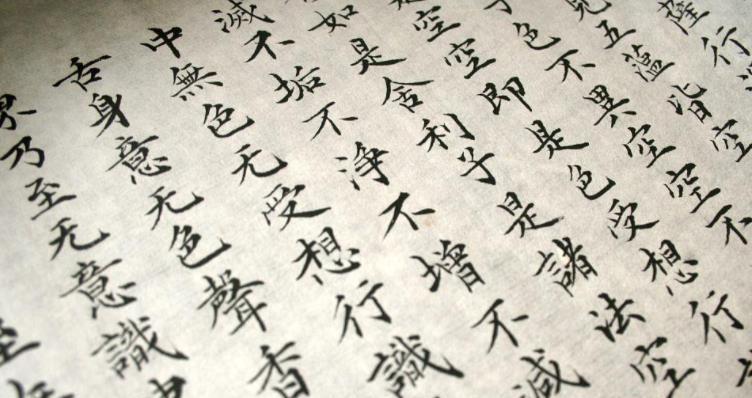 薩行
見五蘊皆空
色不異空空不
空空即是色受想行
如是舍利子是諸法空
滅不垢不淨不增不減
中無色无受想行識
舌身意无色聲香
界乃至无意識